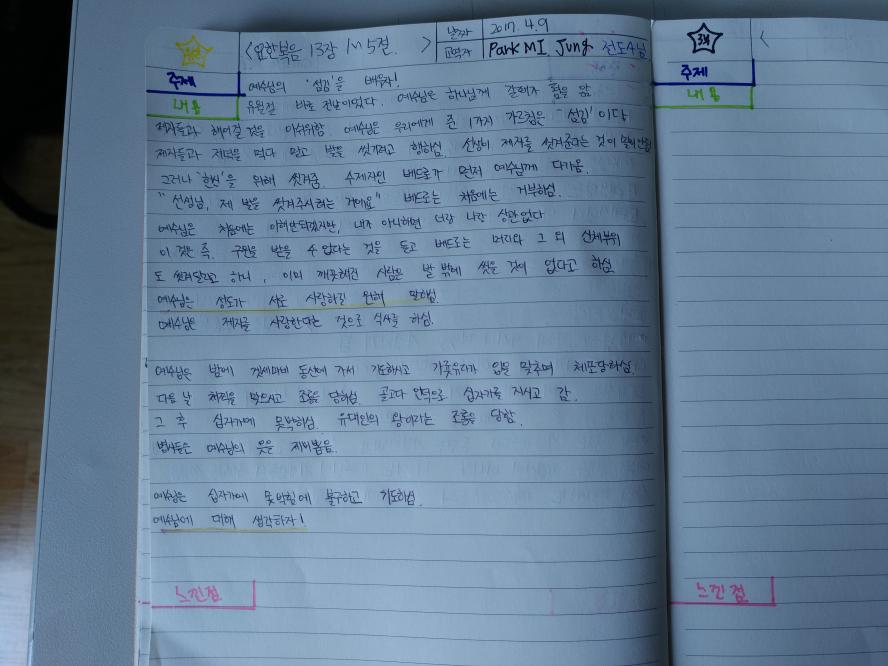 <요한복음 13장 1~5절. >
날짜 2017. 4. 9
교역자 Park MI Jung 전도사님
주제 예수님의 '섬김'을 배우자!
내용 유월절 바로 전날이었다. 예수님은 하나님께 갈때가 됨을 앎
제자들과 헤어질 것을 아쉬워함. 예수님은 우리에게 준 1가지 가르침은 '섬김'이다
제자들과 저녁을 먹다 말고 발을 씻기려고 행하심. 선생이 제자를 씻겨준다는 것이
그러나 '헌신'을 위해 씻겨줌. 수제자인 베드로가 먼저 예수님께 다가옴.
"선생님, 제 발을 씻겨주시려는 거에요" 베드로는 처음에는 거부하심.
예수님은 처음에는 이해안되겠지만, 내가 아니하면 너랑 나랑 상관없다
이 것은 즉. 구원을 받을 수 없다는 것을 듣고 베드로는 머리와 그 외 신체부위
도 씻겨달라고 하니, 이미 깨끗해진 사람은 발 밖에 씻을 것이 없다고 하심
예수님은 성도가 서로 사랑하길 원해 말하심.
예수님은 제자를 사랑한다는 것으로 식사를 하심.
예수님은 밤에 겟세마네 동산에 가서 기도하시고 가룟유다가 입을 맞추며 체포당하심.
다음 날 채찍을 맞으시고 조롱을 당하심. 골고다 언덕으로 십자가를 지시고 감.
그 후 십자가에 못박히심. 유대인의 왕이라는 조롱을 당함.
병사들은 예수님의 옷을 제비뽑음.
예수님은 십자가에 못박힘에 불구하고 기도하심.
예수님에 대해 생각하자!
느낀점
<
주제
내용
느낀점